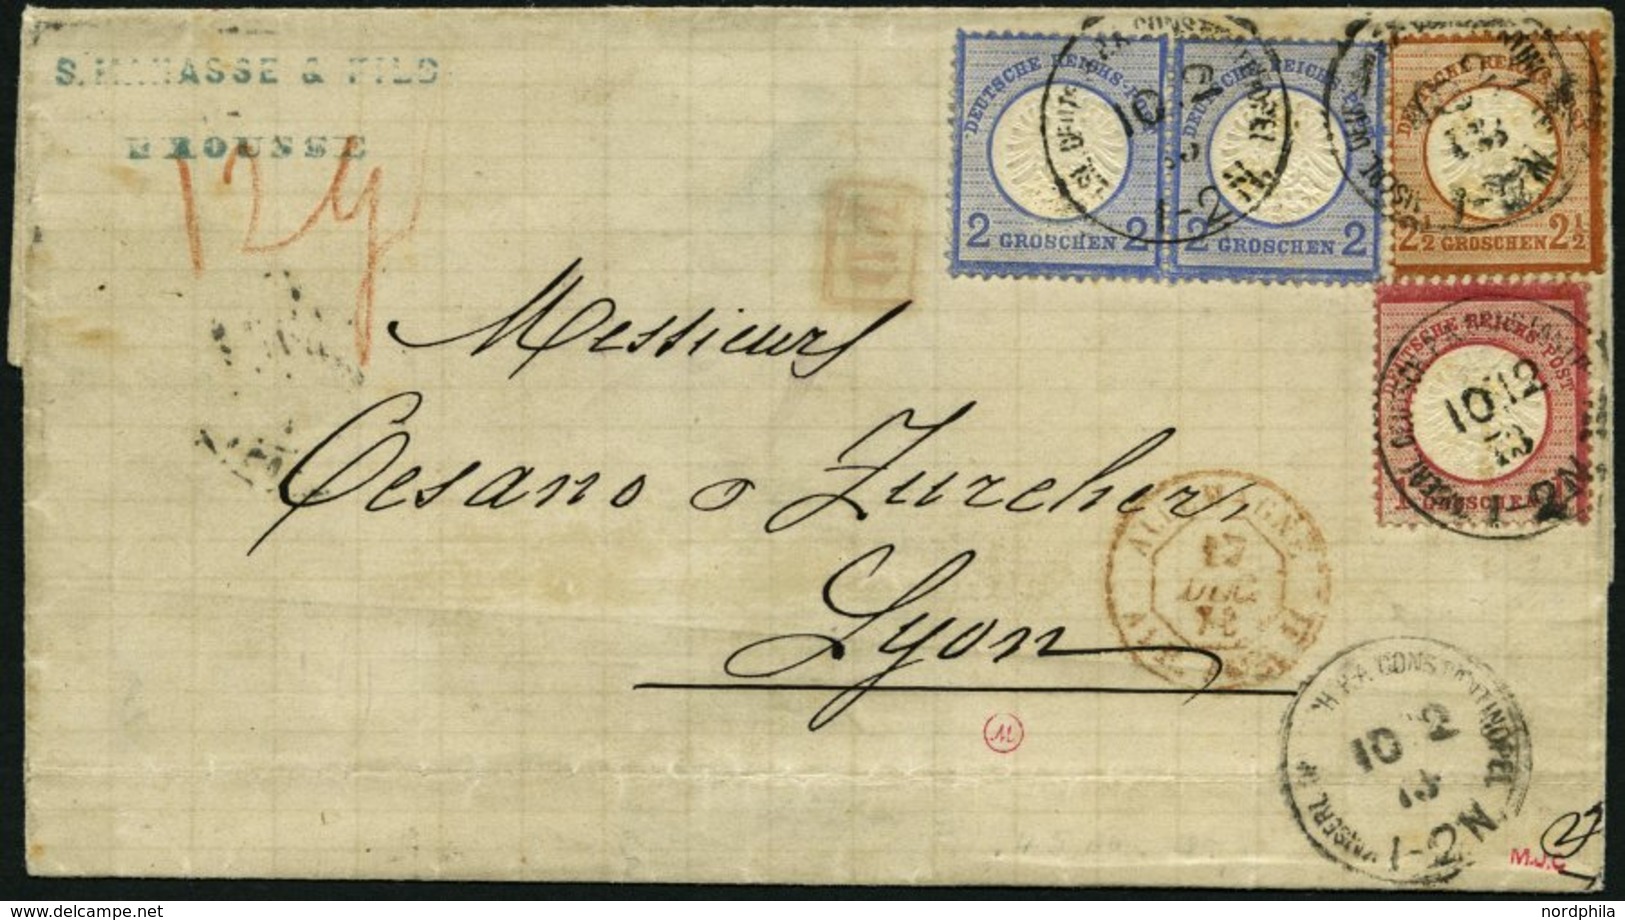 & FILS
BROUSSE
12 g
PD
DEUTSCHE REICHS-POST
2 GROSCHEN 2
DEUTSCHE REICHS
2 GROSCHEN 2
DEUTSCHE REICHS-POST
2½ GROSCHEN 2½
10 12
1-2 N
DEUTSCHE REICHS-POST
1 GROSCHEN 1
10 12
73
1-2N
Messieurs
Cesano & Zurcher,
Lyon
ALLEMAGNE
17
DEC
73
M
KAISERL. DEUTSCH. P.A. CONSTANTINOPEL
10 12
73
1-2N
M.J.C
nordphila